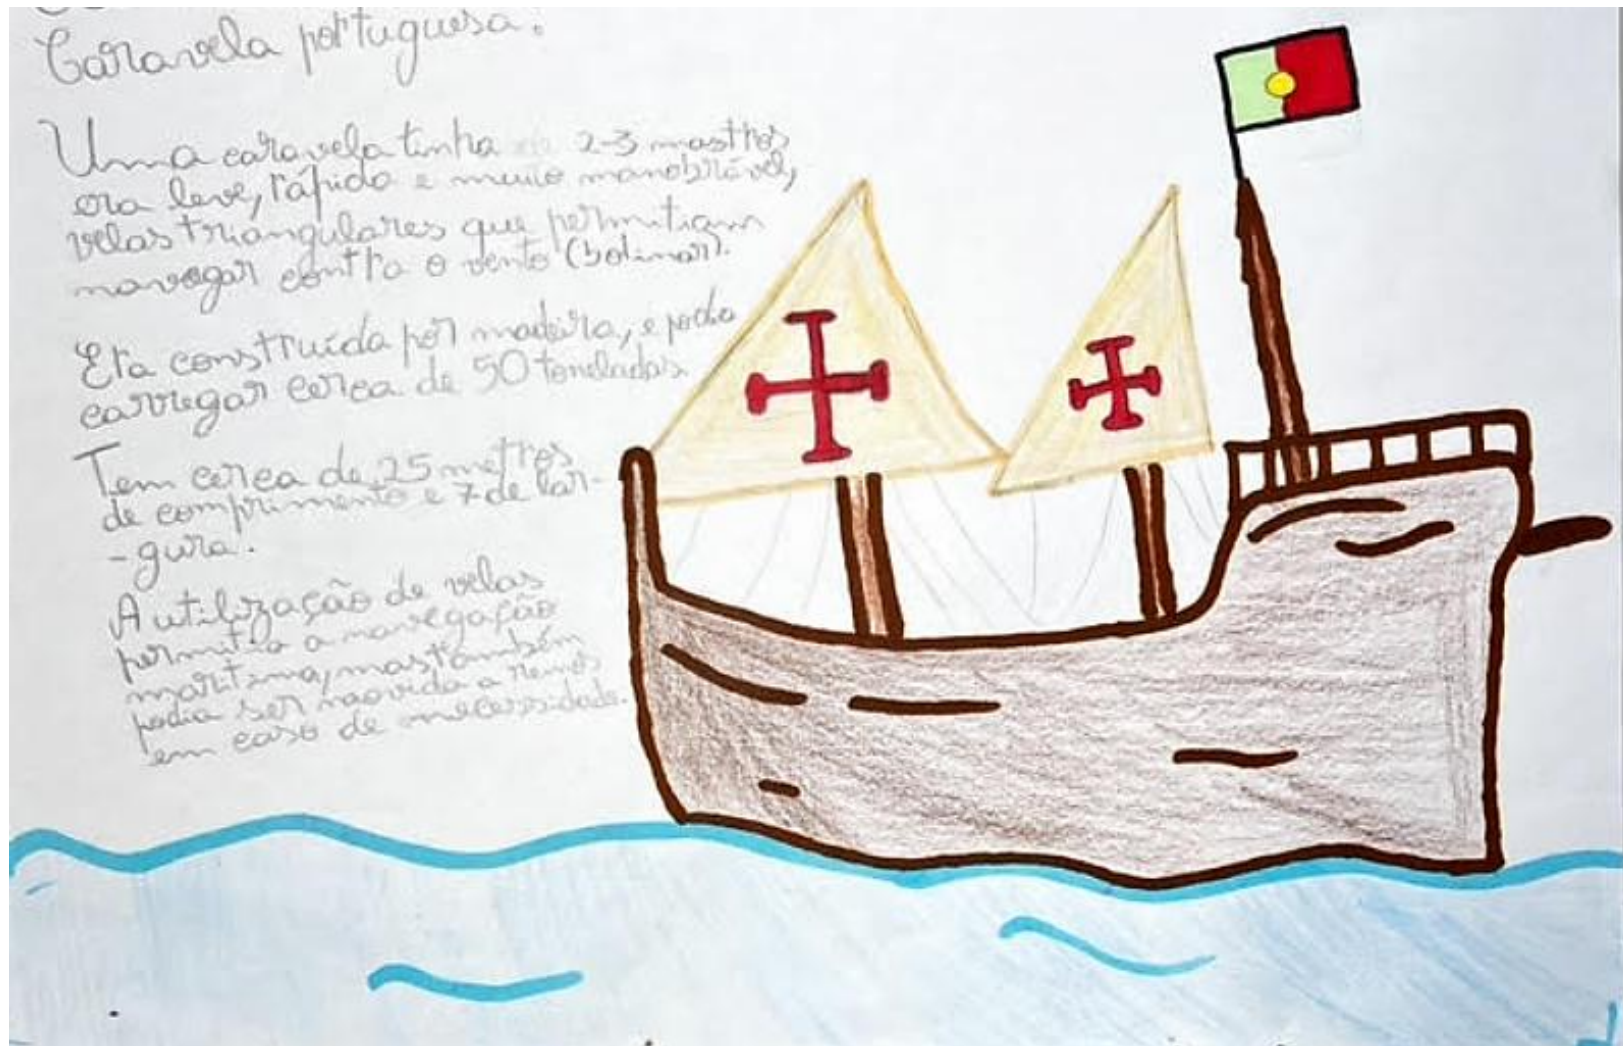 Caravela portuguesa.
Uma caravela tinha 2-3 mastros
era leve, rápida e muito manobrável,
velas triangulares que permitiam
navegar contra o vento (bolinar).
Era construída por madeira, e podia
carregar cerca de 50 toneladas.
Tem cerca de 25 metros
de comprimento e 7 de lar-
-gura.
A utilização de velas
permitia a navegação
marítima, mas também
podia ser movida a remos
em caso de necessidade.